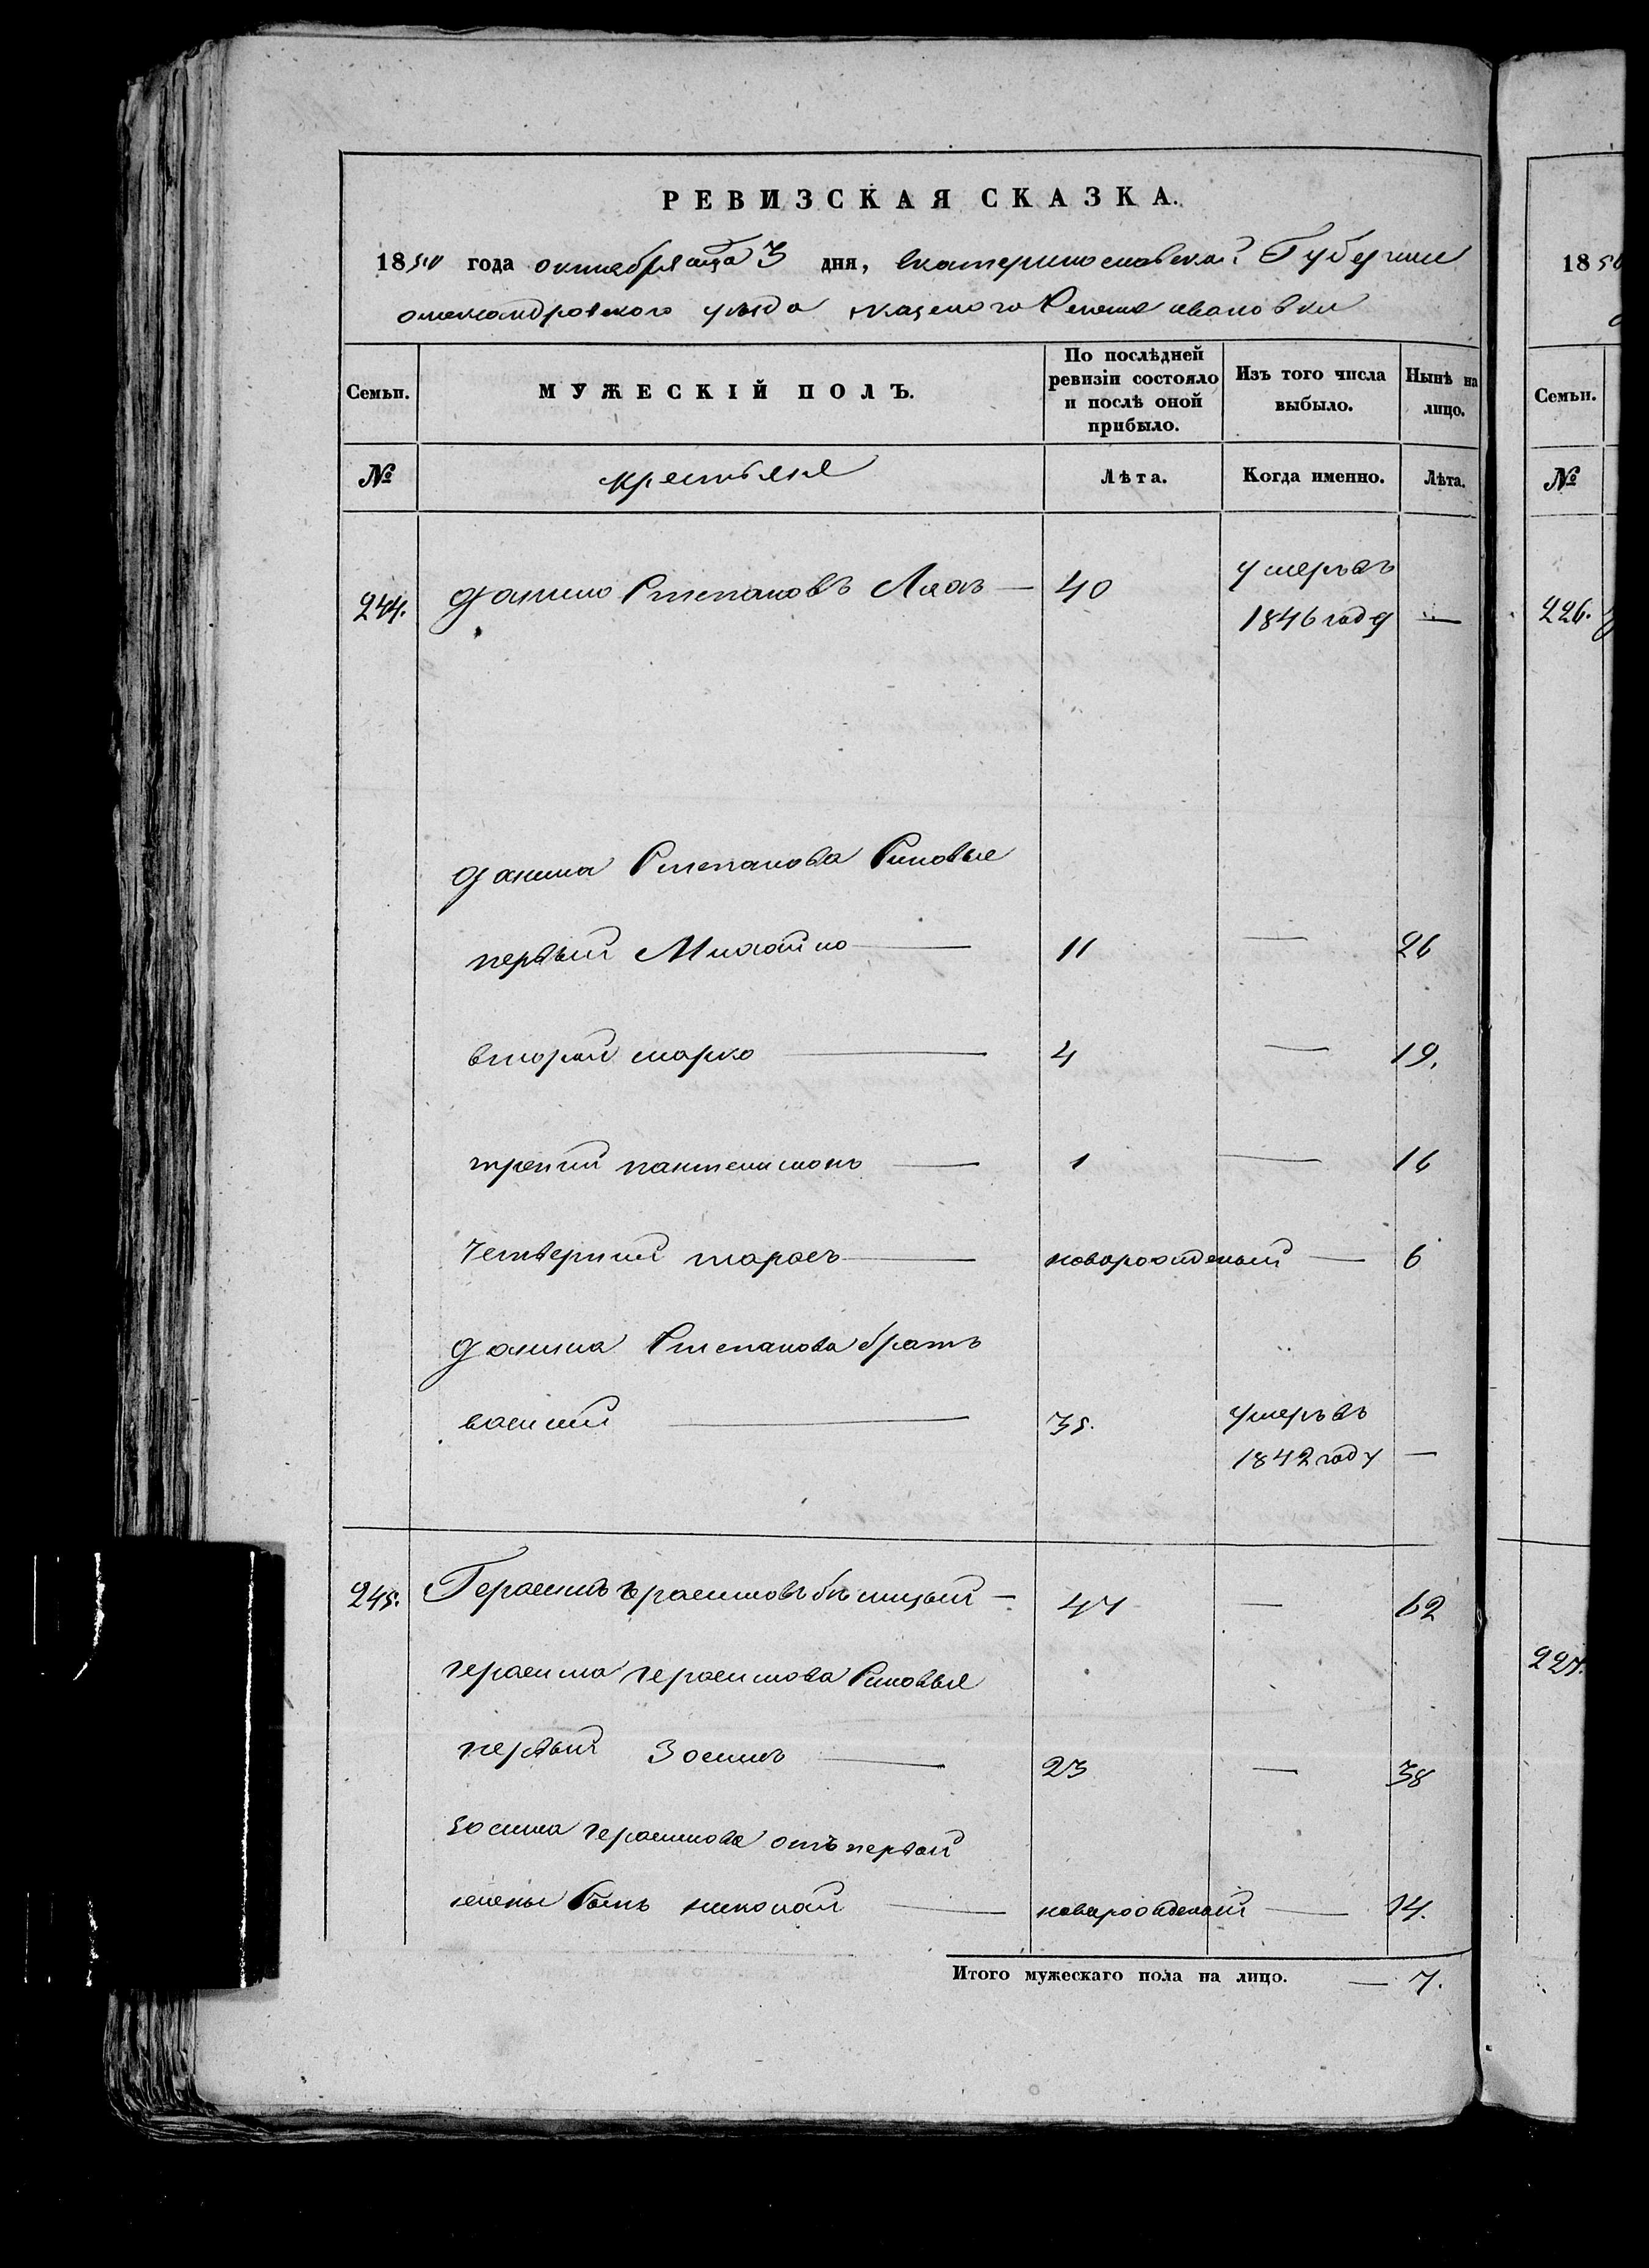 РЕВИЗСКАЯ СКАЗКА.
1850 года октября мца 3 дня, Екатеринославской Губернии
александровского уезда казеного Селения ивановки
Семьи. МУЖЕСКІЙ ПОЛЪ. По послѣдней ревизіи состояло и послѣ оной прибыло. Изъ того числа выбыло. Нынѣ на лицо.
№ крестьяне Лѣта. Когда именно. Лѣта.
244. Данило Степановъ — 40 умеръ въ 1846 году —
Данила Степанова Сыновье
первый Михайло — 11 — 26
вторый марко — 4 — 19.
третий пантелимонъ — 1 — 16
Четвертий тарасъ — новорожденый — 6
Данила Степанова братъ
василий — 35. умеръ въ 1842 году —
245. Герасимъ герасимовъ — 47 — 62
герасима герасимова Сыновья
первый Зосимъ — 23 — 38
Зосима герасимова отъ первой
жены Сынъ николай — новорожденый — 14.
Итого мужескаго пола на лицо. — 7.
1850
Семьи.
№
226.
227.